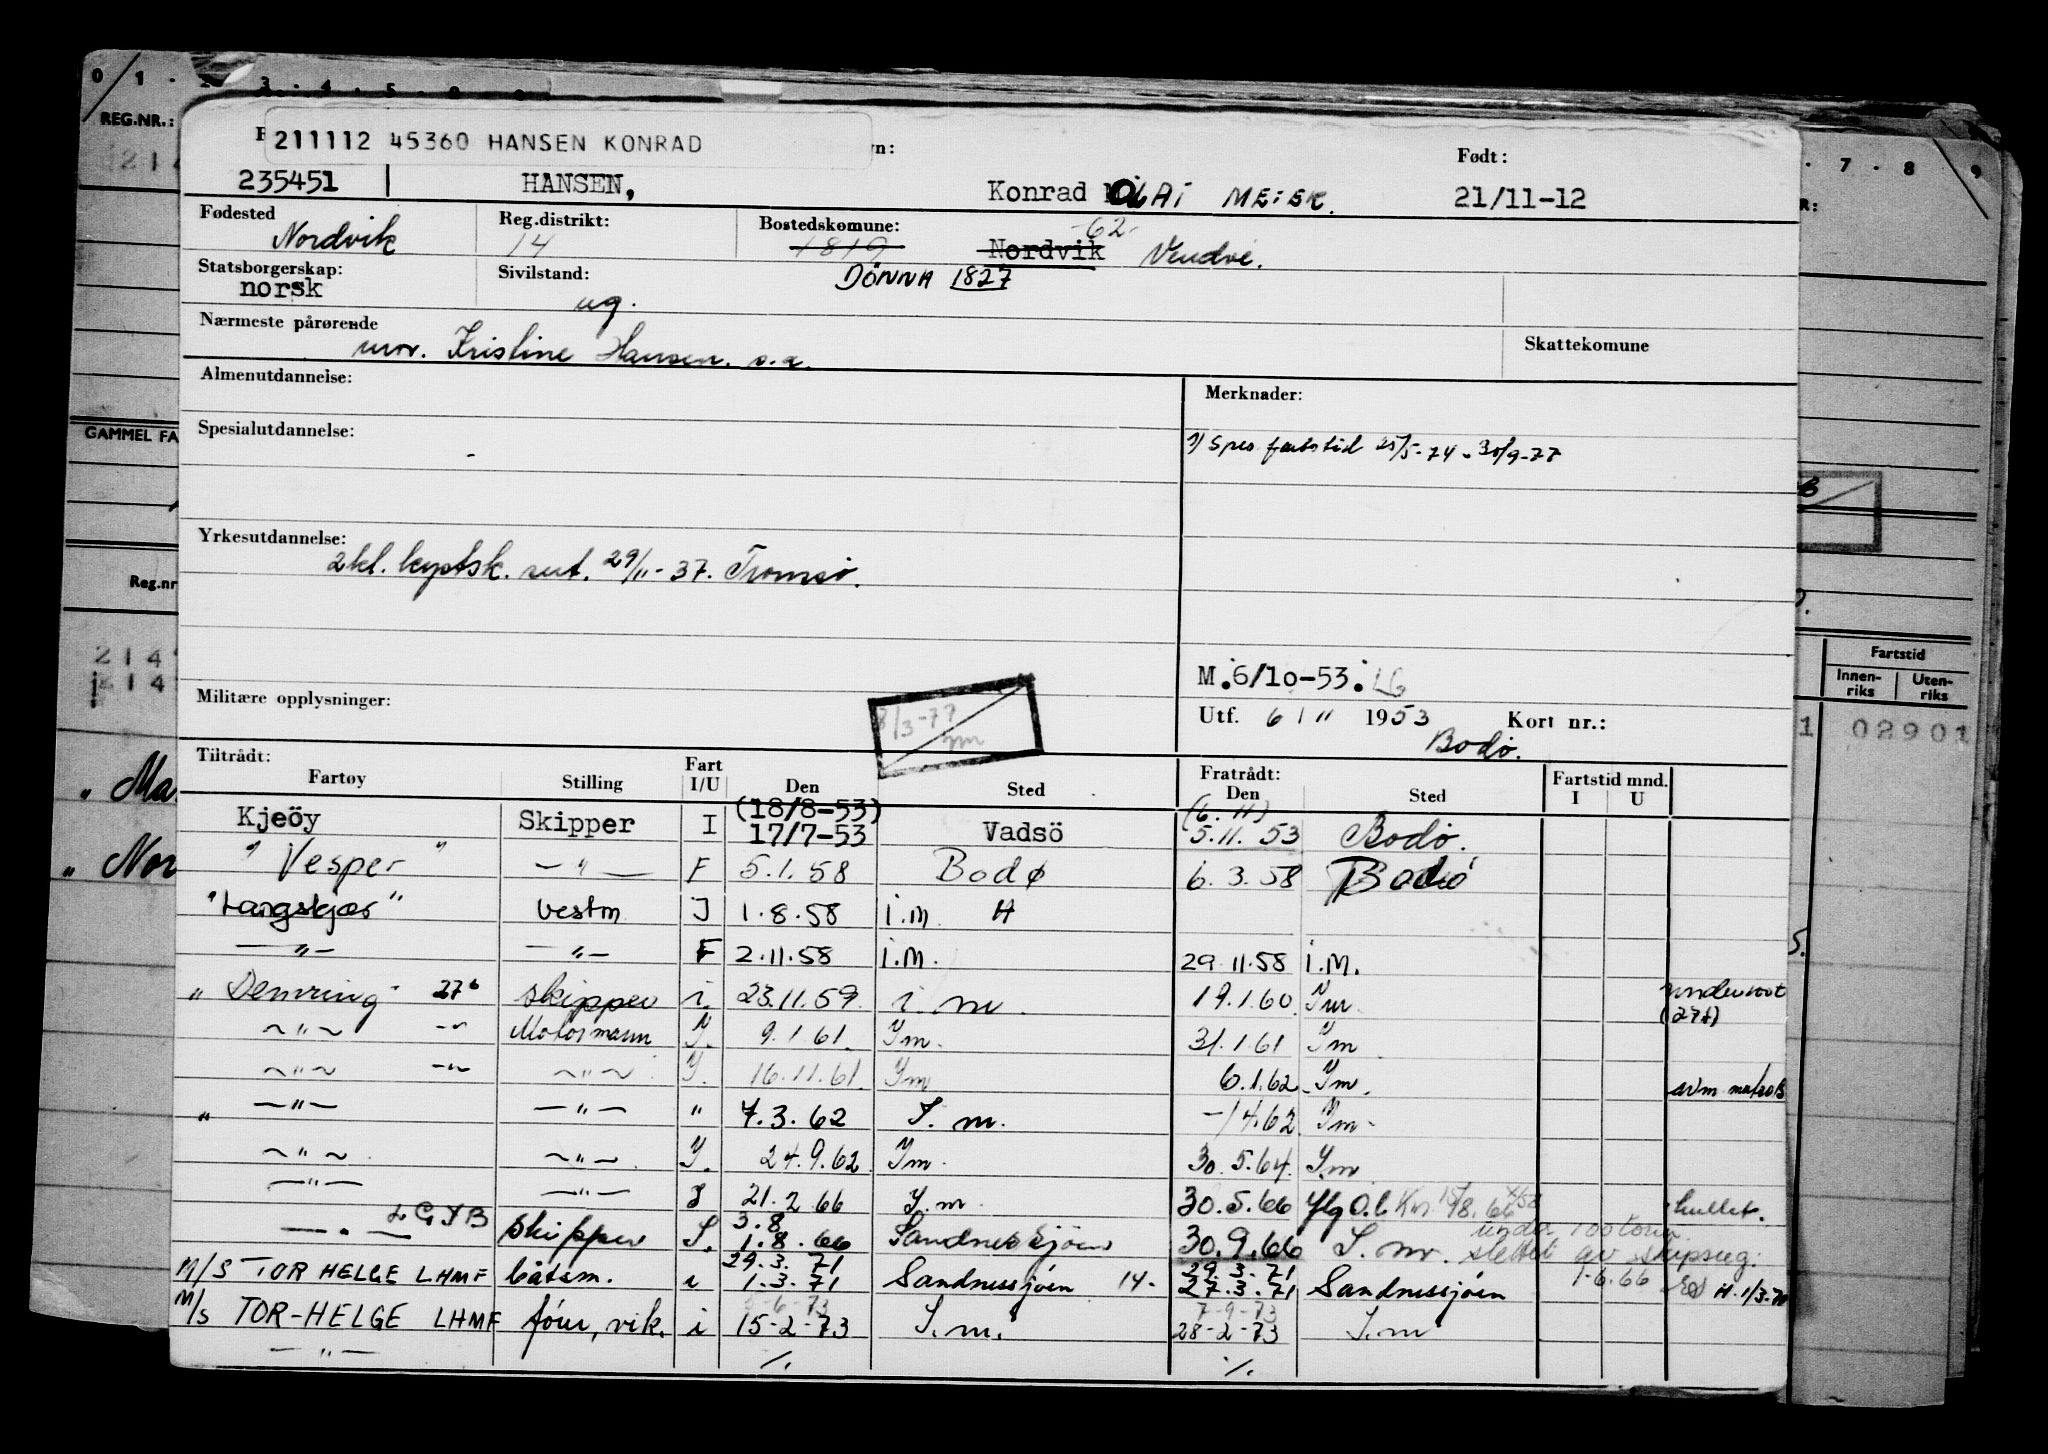 0 1 3 . 4 . 5 . 8 . 9
. 7 . 8 . 9
REG.NR.:
211112 45360 HANSEN KONRAD
Født:
235451 HANSEN, Konrad OLAI MEIER. 21/11-12
Fødested Nordvik Reg.distrikt: 14 Bostedskomune: 1819 Nordvik -62-
Statsborgerskap: norsk Sivilstand: ug. DÖNNA 1827
Nærmeste pårørende mor. Kristine Hansen. s.a.
Skattekomune
Almenutdannelse:
Merknader:
GAMMEL FA
Spesialutdannelse:
1) Spes fartstid 25/5-74 - 30/9-77
Yrkesutdannelse: 2kl. kystsk. sert. 29/11-37. Tromsø.
Reg.nr
Fartstid
Innen-riks Uten-riks
M.6/10-53. LG
Militære opplysninger: 8/3-77
Utf. 6/11 1953 Kort nr.:
Bodø.
02901
Tiltrådt: Fratrådt: Fartstid mnd.
Fartøy Stilling Fart I/U Den Sted Den Sted I U
Kjeöy Skipper I (18/8-53) 17/7-53 Vadsö (6.11) 5.11.53 Bodø.
" Vesper " —"— F 5.1.58 Bodø 6.3.58 Bodø
"Langskjær" Vestm J 1.8.58 i.m. H
—"— —"— F 2.11.58 i.m. 29.11.58 i.m.
" Demring " 27b skipper i. 23.11.59 i.m. 19.1.60 Im.
(27t)
—"— -"- Motormann Y. 9.1.61. Ym. 31.1.61 Ym
—"— -"- —"— Y. 16.11.61. Ym 6.1.62. Ym. som matros
" —"— —"— " 7.3.62 I.m. -/4.62. Ym-
—"— —"— Y. 24.9.62. Ym. 30.5.64. Y.m
—"— —"— J 21.2.66 Y.m. 30.5.66
—"— LGYB Skipper I. 3.8 1.8.66 Sandnessjøen 30.9.66 I.m.
under 100 tonn.
slettet av skipsreg.
1-6.66
M/S TOR HELGE LHMF båtsm. i 29.3.71 1.3.71 Sandnessjøen 14- 29.3.71 27.3.71 Sandnessjøen H.1/3-70
M/S TOR-HELGE LHMF i 15-2-73 I.m. 7-9-73 28-2-73 I.m
—"— ·/. ·/.